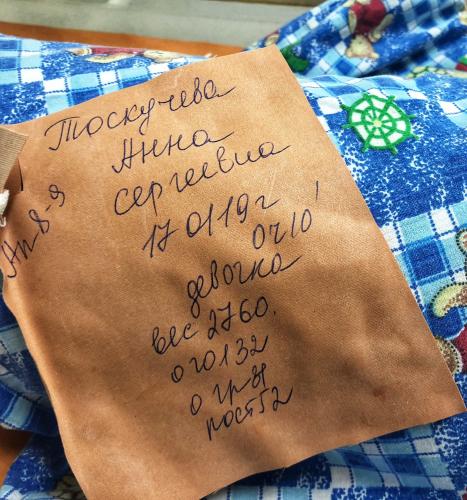 Тоскучева
Анна
Сергеевна
17 01 19 г
0ч10'
девочка
вес 2760.
о го л 32
о гр 31
рост 52
Ап 8-я